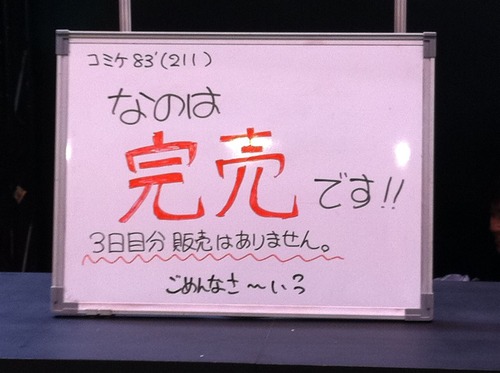 コミケ83'(211)
なのは
完売です!!
3日目分 販売はありません。
ごめんなさ〜いっ